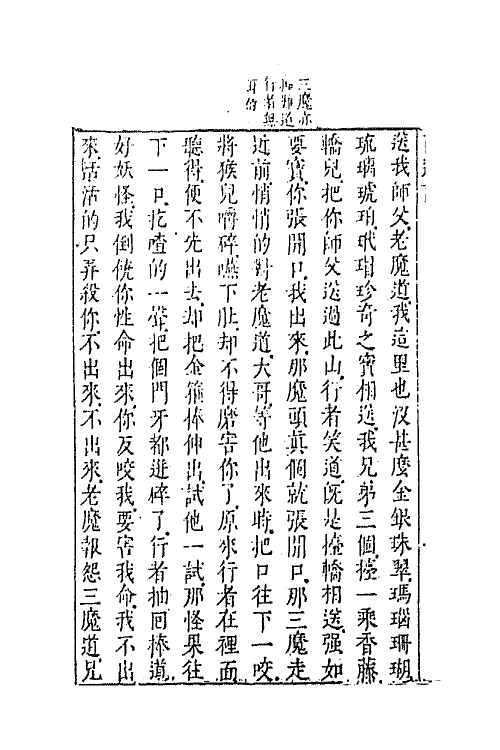 三魔亦
行者與
送我師父老魔道我這里也沒甚麼金銀珠翠瑪瑙珊瑚
琉璃琥珀玳瑁珍奇之寶相送我兄弟三個擡一乘香藤
轎兒把你師父送過此山行者笑道既是擡轎相送强如
要寶你張開口我出來那魔頭真個就張開口那三魔走
近前悄悄的對老魔道大哥等他出來時把口往下一咬
將猴兒嚼碎嚥下肚却不得磨害你了原來行者在裡面
聽得便不先出去却把金箍棒伸出試他一試那怪果往
下一口扢喳的一聲把個門牙都迸碎了行者抽回棒道
好妖怪我倒饒你性命出來你反咬我要害我命我不出
來活活的只弄殺你不出來不出來老魔報怨三魔道兄